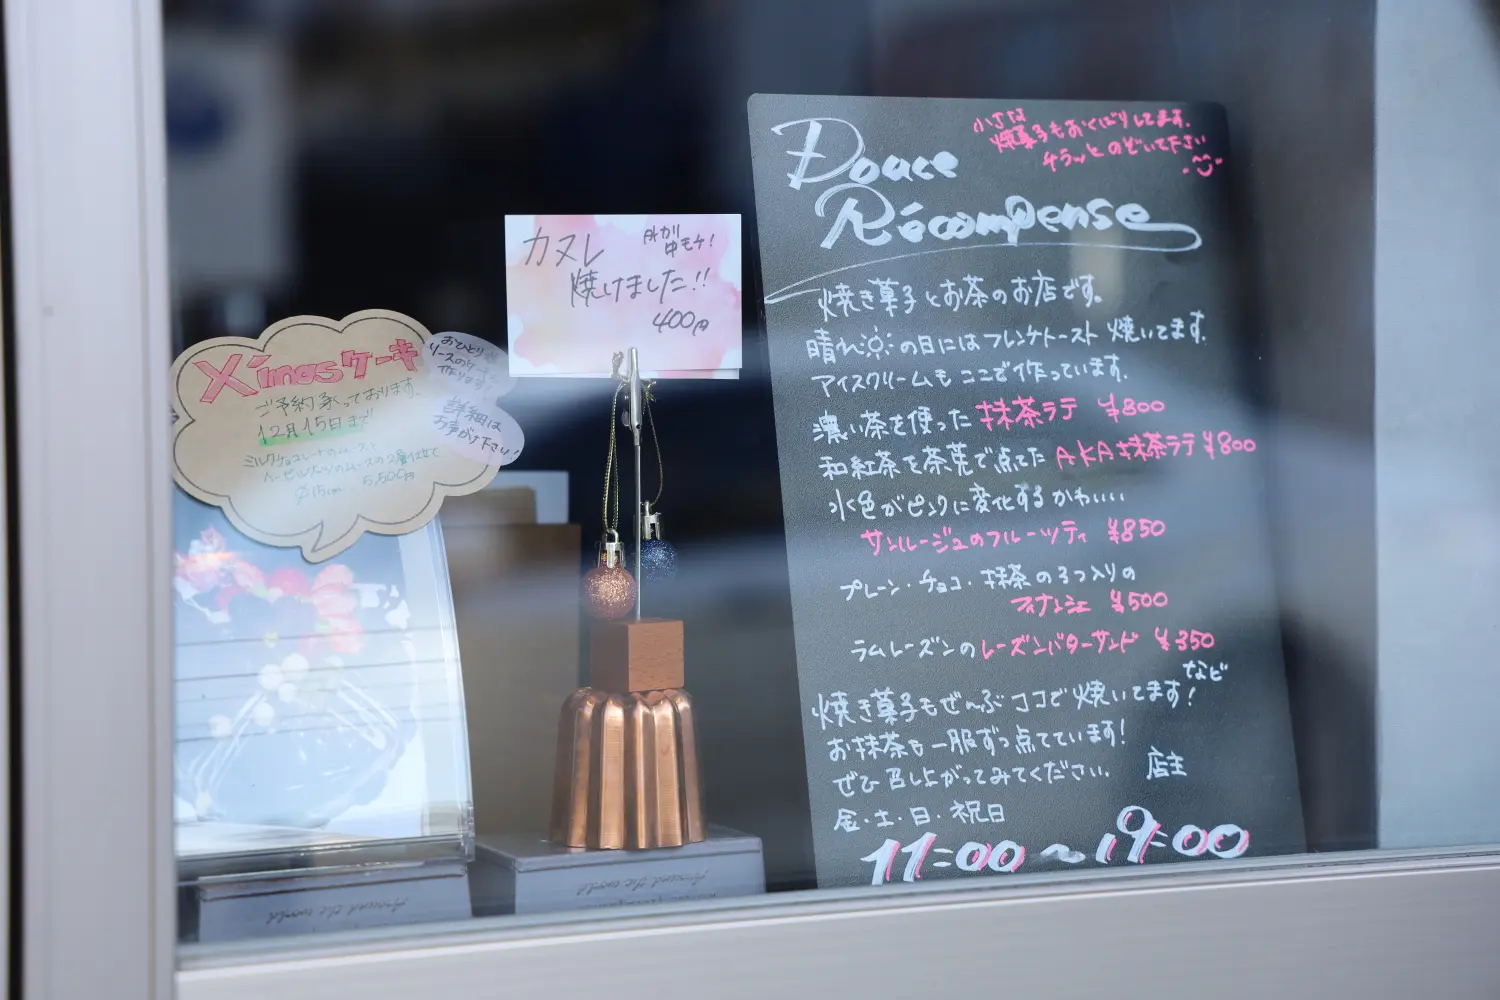 X'masケーキ
ご予約承っております。
12月15日まで
ミルクチョコレートのムースと
ヘーゼルナッツのムースの2層仕立て
φ15cm 5,500円
おひとり様
サイズのケーキも
作ります
詳細は
お声がけ下さい!
カヌレ
外カリ
中モチ!
焼けました!!
400円
小さな
焼菓子もおくばりしてます。
チラッとのぞいて下さい
Douce
Récompense
焼き菓子とお茶のお店です。
晴れの日にはフレンチトースト焼いてます。
アイスクリームもここで作っています。
濃い茶を使った抹茶ラテ ¥800
和紅茶を茶筅で点てたAKA抹茶ラテ¥800
水色がピンクに変化するかわいい
サンルージュのフルーツティ ¥850
プレーン・チョコ・抹茶の3つ入りの
フィナンシェ ¥500
ラムレーズンのレーズンバターサンド ¥350
など
焼き菓子もぜ〜んぶココで焼いてます!
お抹茶も一服ずつ点てています!
ぜひ召し上がってみてください。 店主
金・土・日・祝日
11:00〜19:00
Around the world